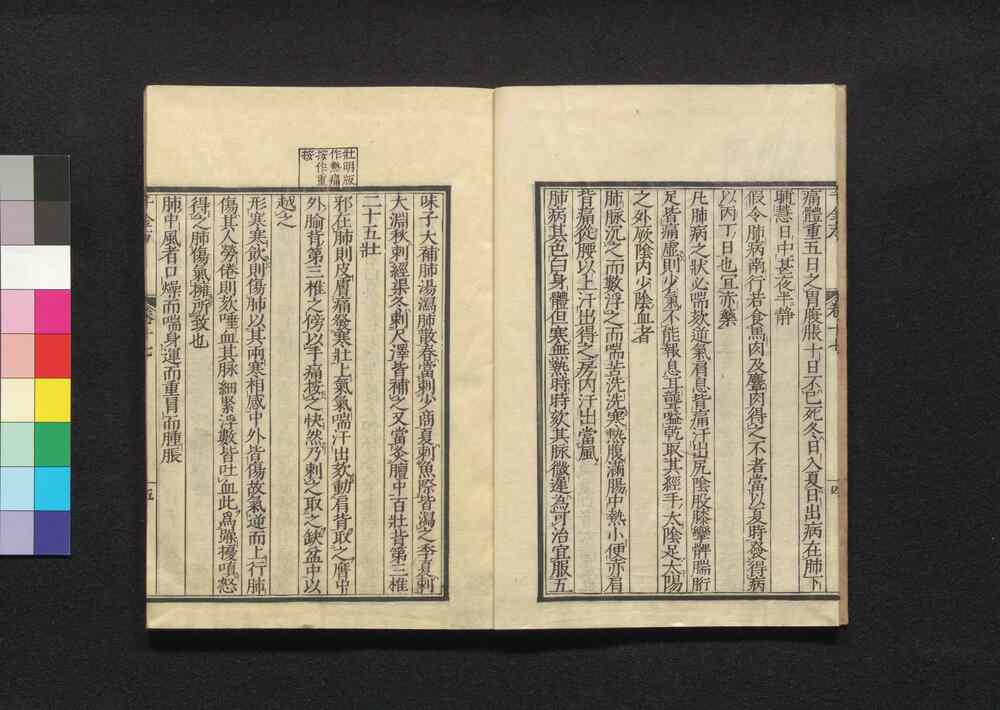 痛體重五日之胃腹脹十日不已死冬日入夏日出病在肺下
晡慧日中甚夜半靜
假令肺病南行若食馬肉及麞肉得之不者當以夏時發得病
以丙丁日也宜赤藥
凡肺病之狀必喘欬逆氣肩息背痛汗出尻陰股膝攣髀腨胻
足皆痛虛則少氣不能報息耳聾嗌乾取其經手太陰足太陽
之外厥陰內少陰血者
肺脉沉之而數浮之而喘苦洗洗寒熱腹滿腸中熱小便赤肩
背痛從腰以上汗出得之房內汗出當風
肺病其色白身體但寒無熱時時欬其脉微遲爲可治宜服五
味子大補肺湯瀉肺散春當刺少商夏刺魚際皆瀉之季夏刺
大淵秋刺經渠冬刺尺澤皆補之又當灸膻中百壯背第三椎
二十五壯
邪在肺則皮膚痛發寒壯上氣氣喘汗出欬動肩背取之膺中
外腧背第三椎之傍以手痛按之快然乃刺之取之缺盆中以
越之
形寒寒飲則傷肺以其兩寒相感中外皆傷故氣逆而上行肺
傷其人勞倦則欬唾血其脉細緊浮數皆吐血此爲躁擾嗔怒
得之肺傷氣擁所致也
肺中風者口燥而喘身運而重冒而腫脹
壯明版
作熱痛
按作重
按
卷十七
十四